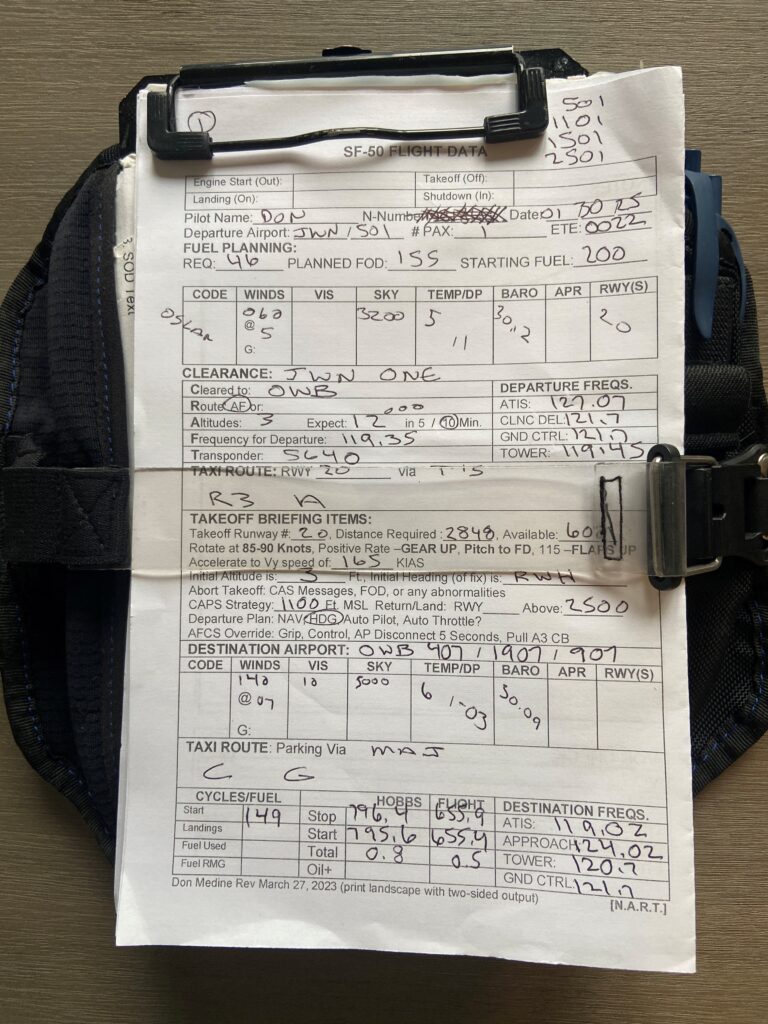 ①
501
1101
1501
2501
SF-50 FLIGHT DATA
Engine Start (Out): Takeoff (Off):
Landing (On): Shutdown (In):
Pilot Name: DON N-Numbe Date: 01 30 25
Departure Airport: JWN / 501 # PAX: 1 ETE: 0022
FUEL PLANNING:
REQ: 46 PLANNED FOD: 155 STARTING FUEL: 200
CODE WINDS VIS SKY TEMP/DP BARO APR RWY(S)
OSCAR 060 @ 5 G: 3200 5 / 1 30.12 20
CLEARANCE: JWN ONE
Cleared to: OWB DEPARTURE FREQS.
Route AF or: ATIS: 127.07
Altitudes: 3 Expect: 12 ,000 in 5 / 10 Min. CLNC DEL: 121.7
Frequency for Departure: 119.35 GND CTRL: 121.7
Transponder: 5640 TOWER: 119.45
TAXI ROUTE: RWY 20 via
R3 A
TAKEOFF BRIEFING ITEMS:
Takeoff Runway #: 20, Distance Required: 2848, Available: 60
Rotate at 85-90 Knots, Positive Rate –GEAR UP, Pitch to FD, 115 –FLAPS UP
Accelerate to Vy speed of: 165 KIAS
Initial Altitude is: 3 Ft., Initial Heading (of fix) is: RWH
Abort Takeoff: CAS Messages, FOD, or any abnormalities
CAPS Strategy: 1100 Ft. MSL Return/Land: RWY Above: 2500
Departure Plan: NAV HDG Auto Pilot, Auto Throttle?
AFCS Override: Grip, Control, AP Disconnect 5 Seconds, Pull A3 CB
DESTINATION AIRPORT: OWB 407 / 1907 / 907
CODE WINDS VIS SKY TEMP/DP BARO APR RWY(S)
140 @ 07 G: 10 5000 6 / -03 30.09
TAXI ROUTE: Parking Via MAJ
C G
CYCLES/FUEL HOBBS FLIGHT DESTINATION FREQS.
Start 149 Stop 796.4 655.9 ATIS: 119.02
Landings Start 795.6 655.4 APPROACH: 124.02
Fuel Used Total 0.8 0.5 TOWER: 120.7
Fuel RMG Oil+ GND CTRL: 121.7
Don Medine Rev March 27, 2023 (print landscape with two-sided output)
[N.A.R.T.]
3. SOD Text